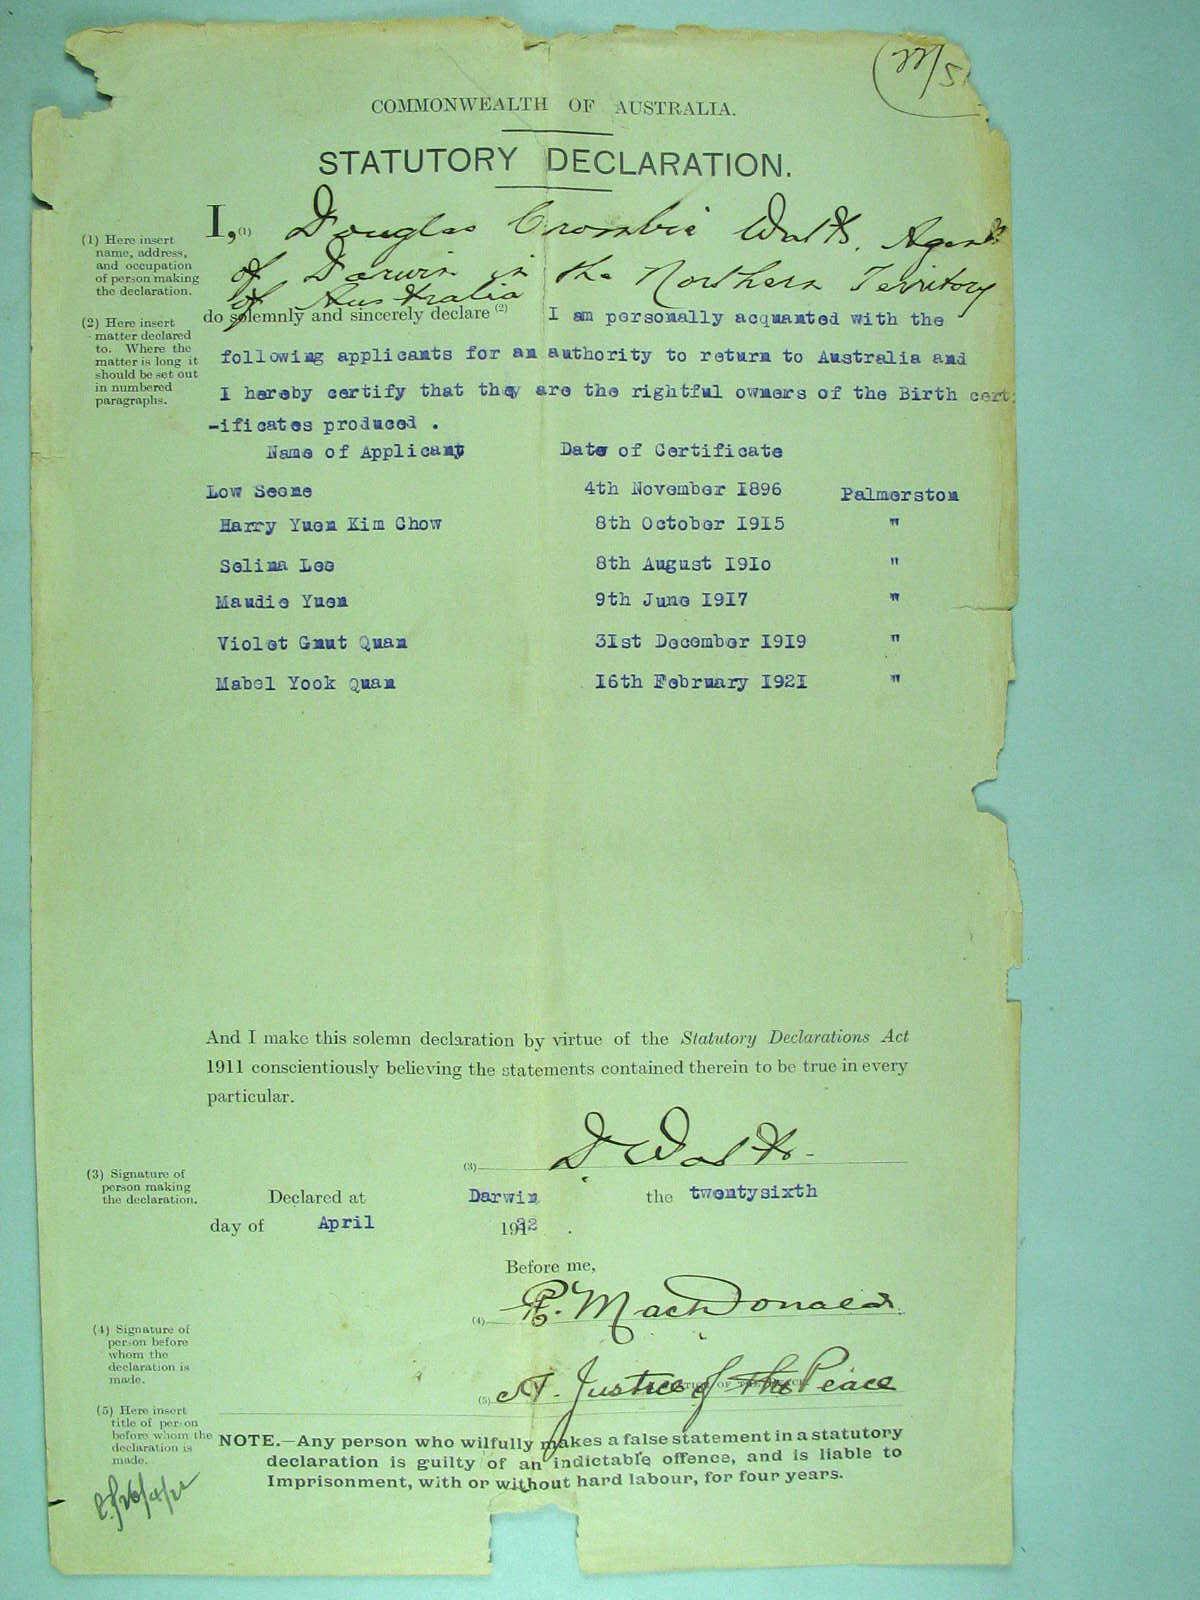 22/5
COMMONWEALTH OF AUSTRALIA.
STATUTORY DECLARATION.
I, (1) Douglas Crombie Watts. Agent
of Darwin in the Northern Territory
of Australia
(1) Here insert
name, address,
and occupation
of person making
the declaration.
do solemnly and sincerely declare (2) I am personally acquanted with the
following applicants for an authority to return to Australia and
I hereby certify that they are the rightful owners of the Birth cert
-ificates produced .
(2) Here insert
matter declared
to. Where the
matter is long it
should be set out
in numbered
paragraphs.
Name of Applicant Date of Certificate
Low Seone 4th November 1896 Palmerston
Harry Yuen Kim Chow 8th October 1915 "
Selina Lee 8th August 191o "
Maudie Yuen 9th June 1917 "
Violet Gnut Quan 31st December 1919 "
Mabel Yook Quan 16th February 1921 "
And I make this solemn declaration by virtue of the Statutory Declarations Act
1911 conscientiously believing the statements contained therein to be true in every
particular.
(3) D Watts.
(3) Signature of
person making
the declaration.
Declared at Darwin the twentysixth
day of April 1922 .
Before me,
(4) MacDonald
(4) Signature of
person before
whom the
declaration is
made.
(5) A. Justice of the Peace
(5) Here insert
title of person
before whom the
declaration is
made.
NOTE.—Any person who wilfully makes a false statement in a statutory
declaration is guilty of an indictable offence, and is liable to
Imprisonment, with or without hard labour, for four years.
26/4/22